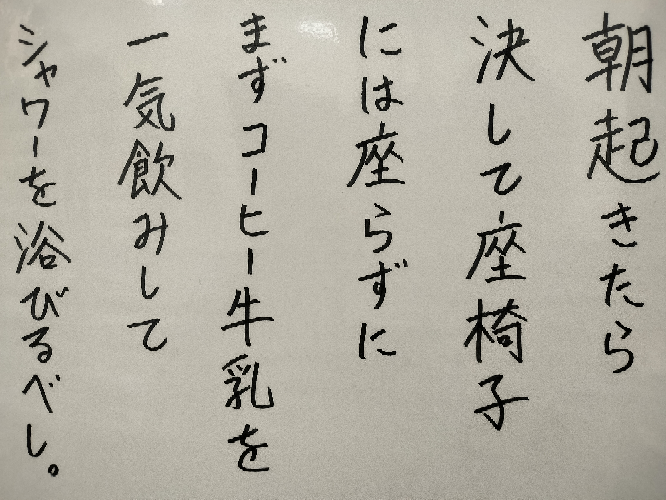 朝起きたら
決して座椅子
には座らずに
まずコーヒー牛乳を
一気飲みして
シャワーを浴びるべし。